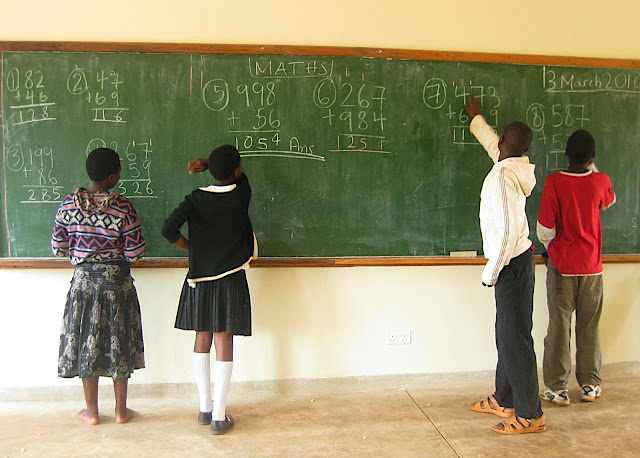 MATHS
13 March 2010
1 82
+46
128
2 47
+69
116
3 199
+86
285
267
59
326
5 998
+ 56
1054 Ans
6 267
+984
1251
7 473
+
8 587
+